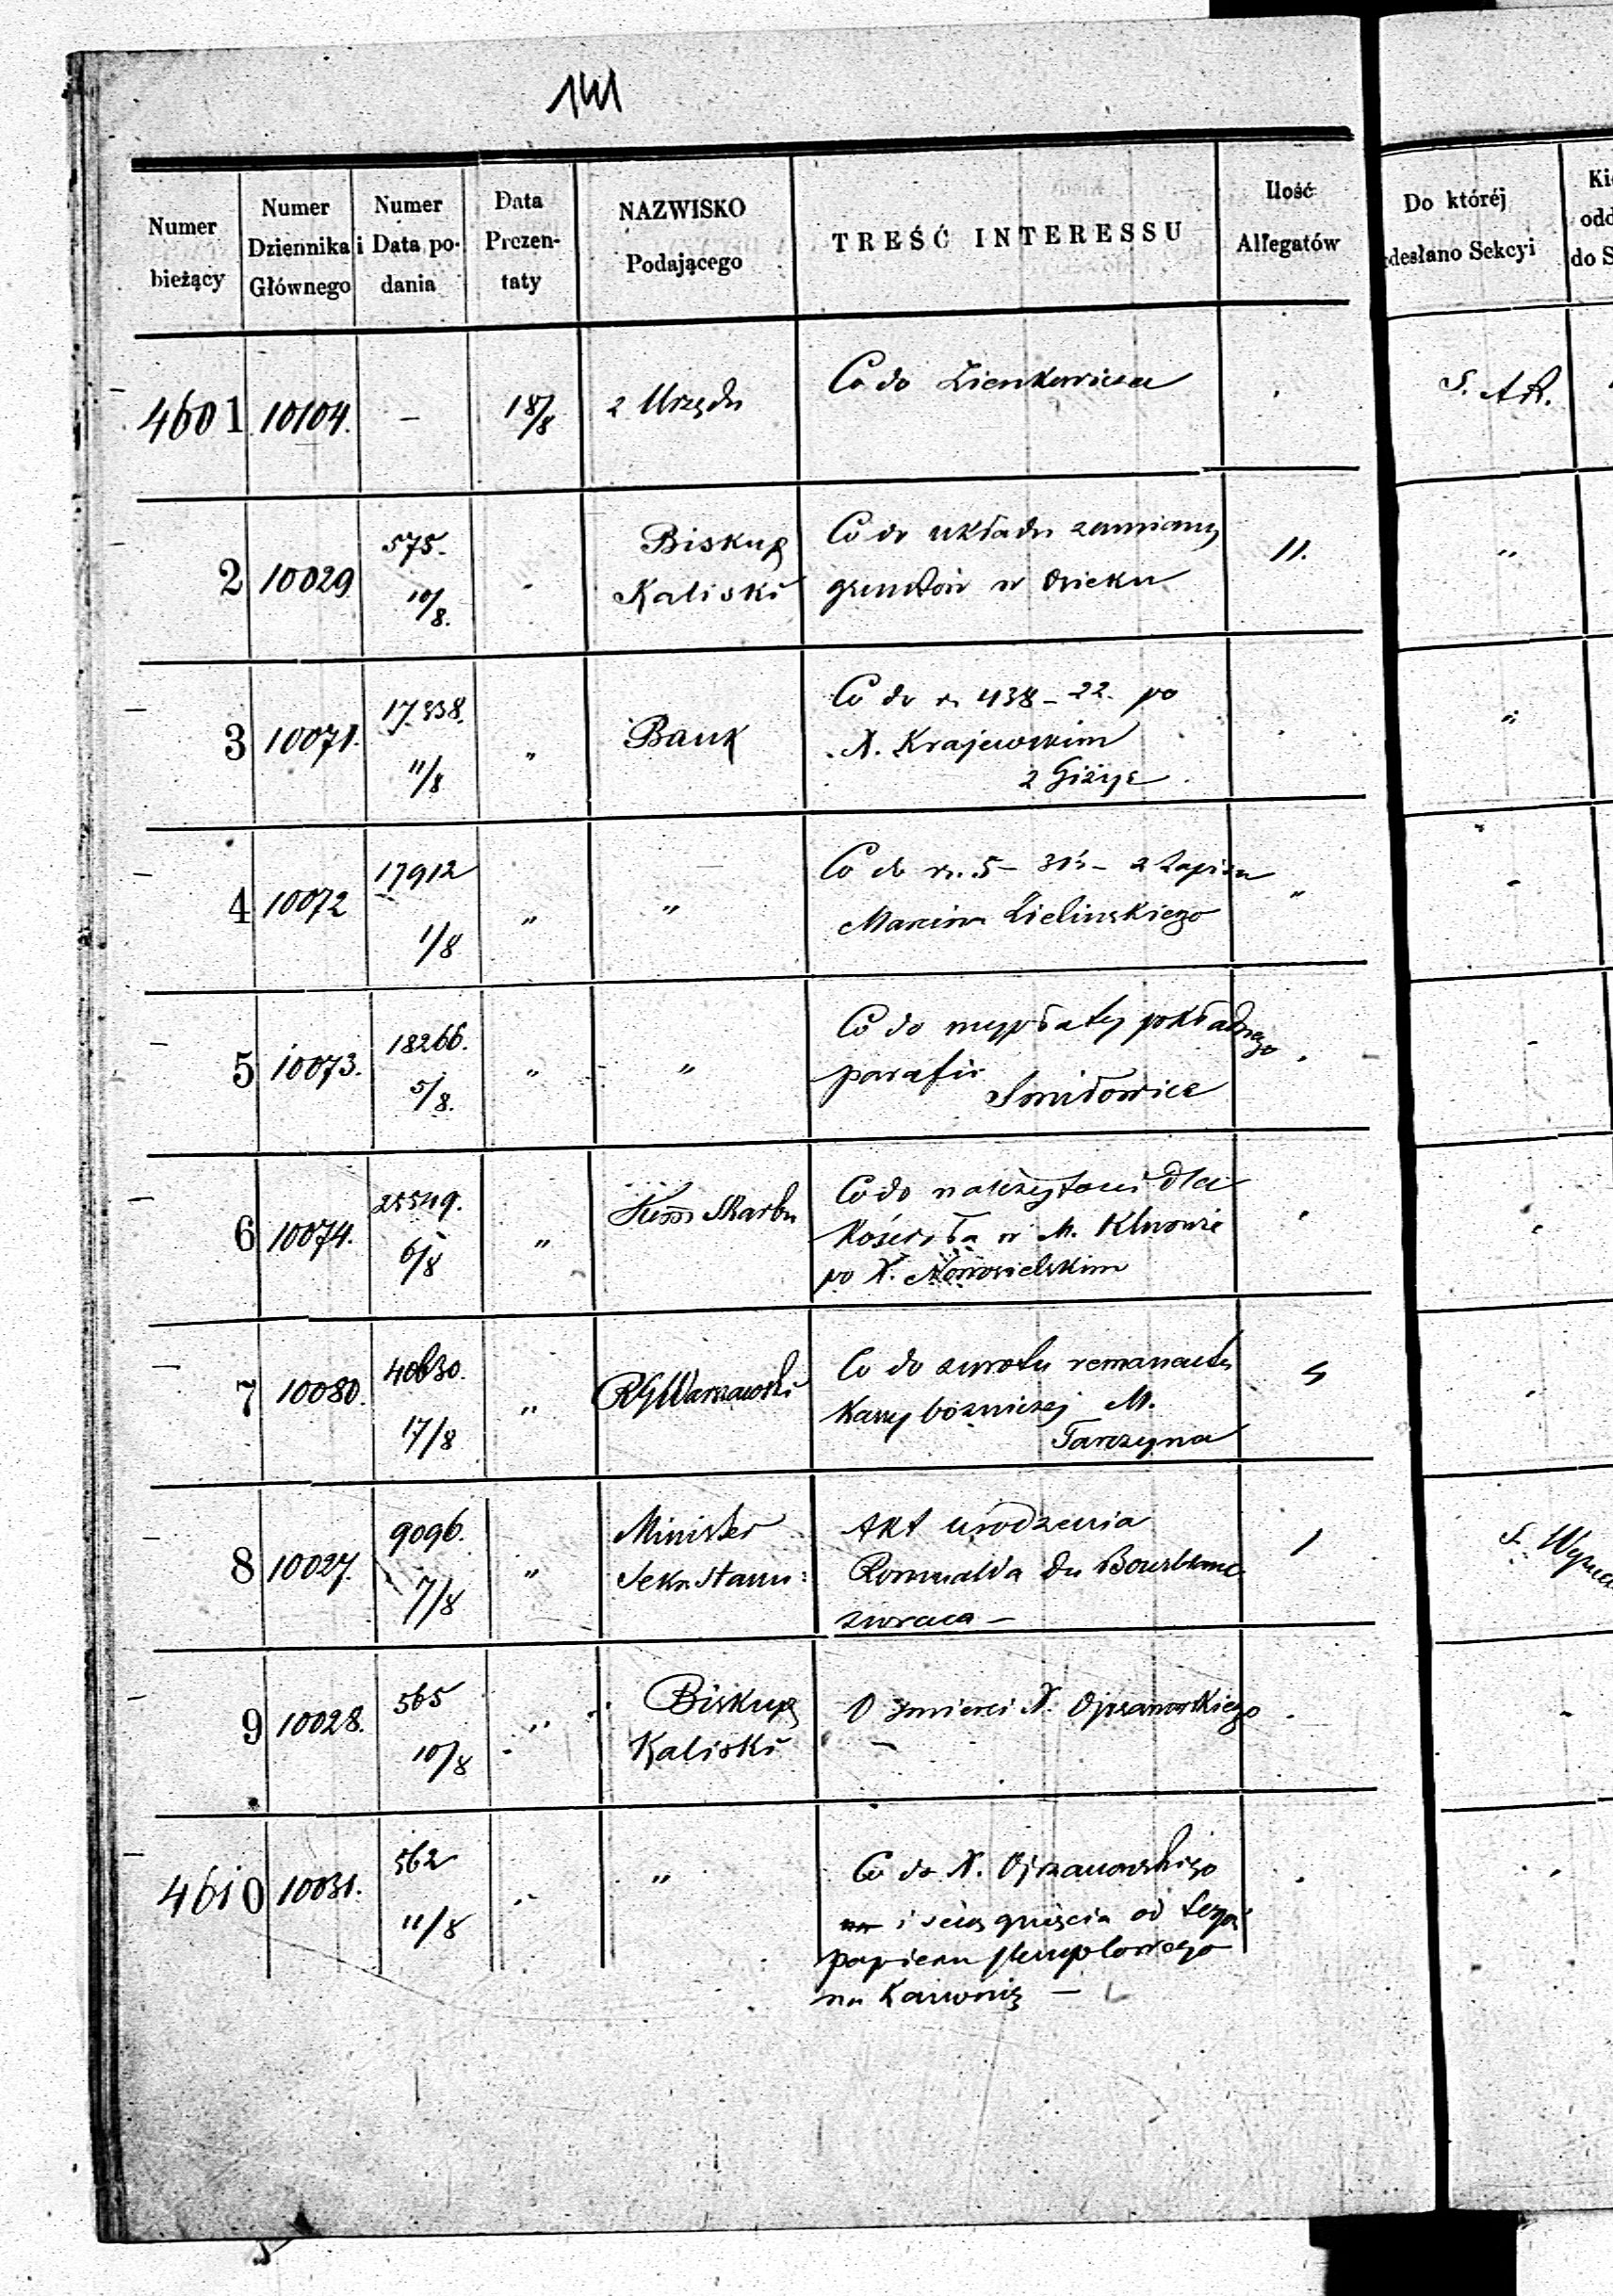 141
Numer bieżący
Numer Dziennika Głównego
Numer i Data podania
Data Prezentaty
NAZWISKO Podającego
TREŚĆ INTERESSU
Ilość Allegatów
Do któréj
desłano Sekcyi
4601 10104. — 18/8 z Urzędu Co do Zienkowicza S. A R.
2 10029 575. 10/8. " Biskup Kaliski Co do układu zamiany 11. "
gruntów w Osieku
3 10071. 17338. 11/8 " Bank Co do rs 438 - 22. po "
X. Krajewskim
z Giżyc
4 10072 17912 1/8 " " Co do rs. 5 - z Zapisu "
Marcina Zielinskiego
5 10073. 18266. 5/8. " " Co do wypłaty pokładnego
parafii
6 10074. 25549. 6/8 " Skarbu Co do należytości dla
Kościoła w M. Klwowie
po X. Nowosielskim
7 10080. 40630. 17/8 " RGWarszawski Co do zwrotu remanentu
Kassy bożniczej M.
Tarczyna
8 10027. 9096. 7/8 " Minister Akt urodzenia 1 S.
Sekr Stanu: Romualda du Bourblanc
zwraca —
9 10028. 565 10/8 " Biskup O śmierci X. Ojrzanowskiego
Kaliski
4610 10031. 562 11/8 " " Co do X. Ojrzanowskiego
i od tegoż
papieru stemplowego
na